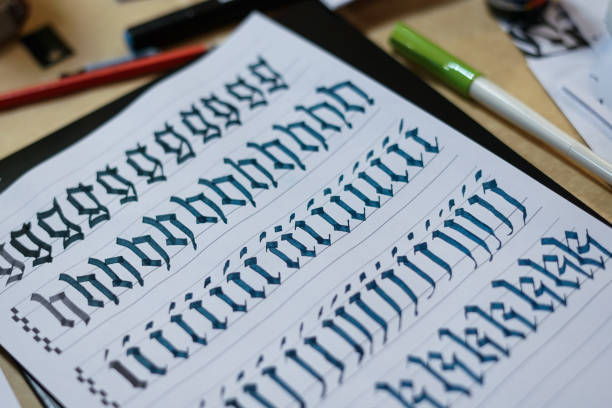 ggggggggggg
hhhhhhhhhhhh
iiiiiiiiiiiiiiiii
jjjjjjjjjjjjjj
kkkkkkkkk